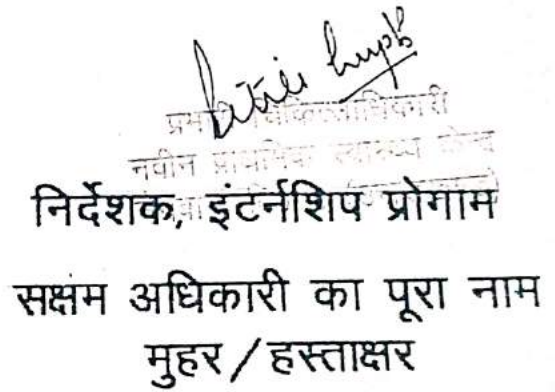 नवीन प्राथमिक स्वास्थ्य केन्द्र
निर्देशक, इंटर्नशिप प्रोगाम
सक्षम अधिकारी का पूरा नाम
मुहर/हस्ताक्षर